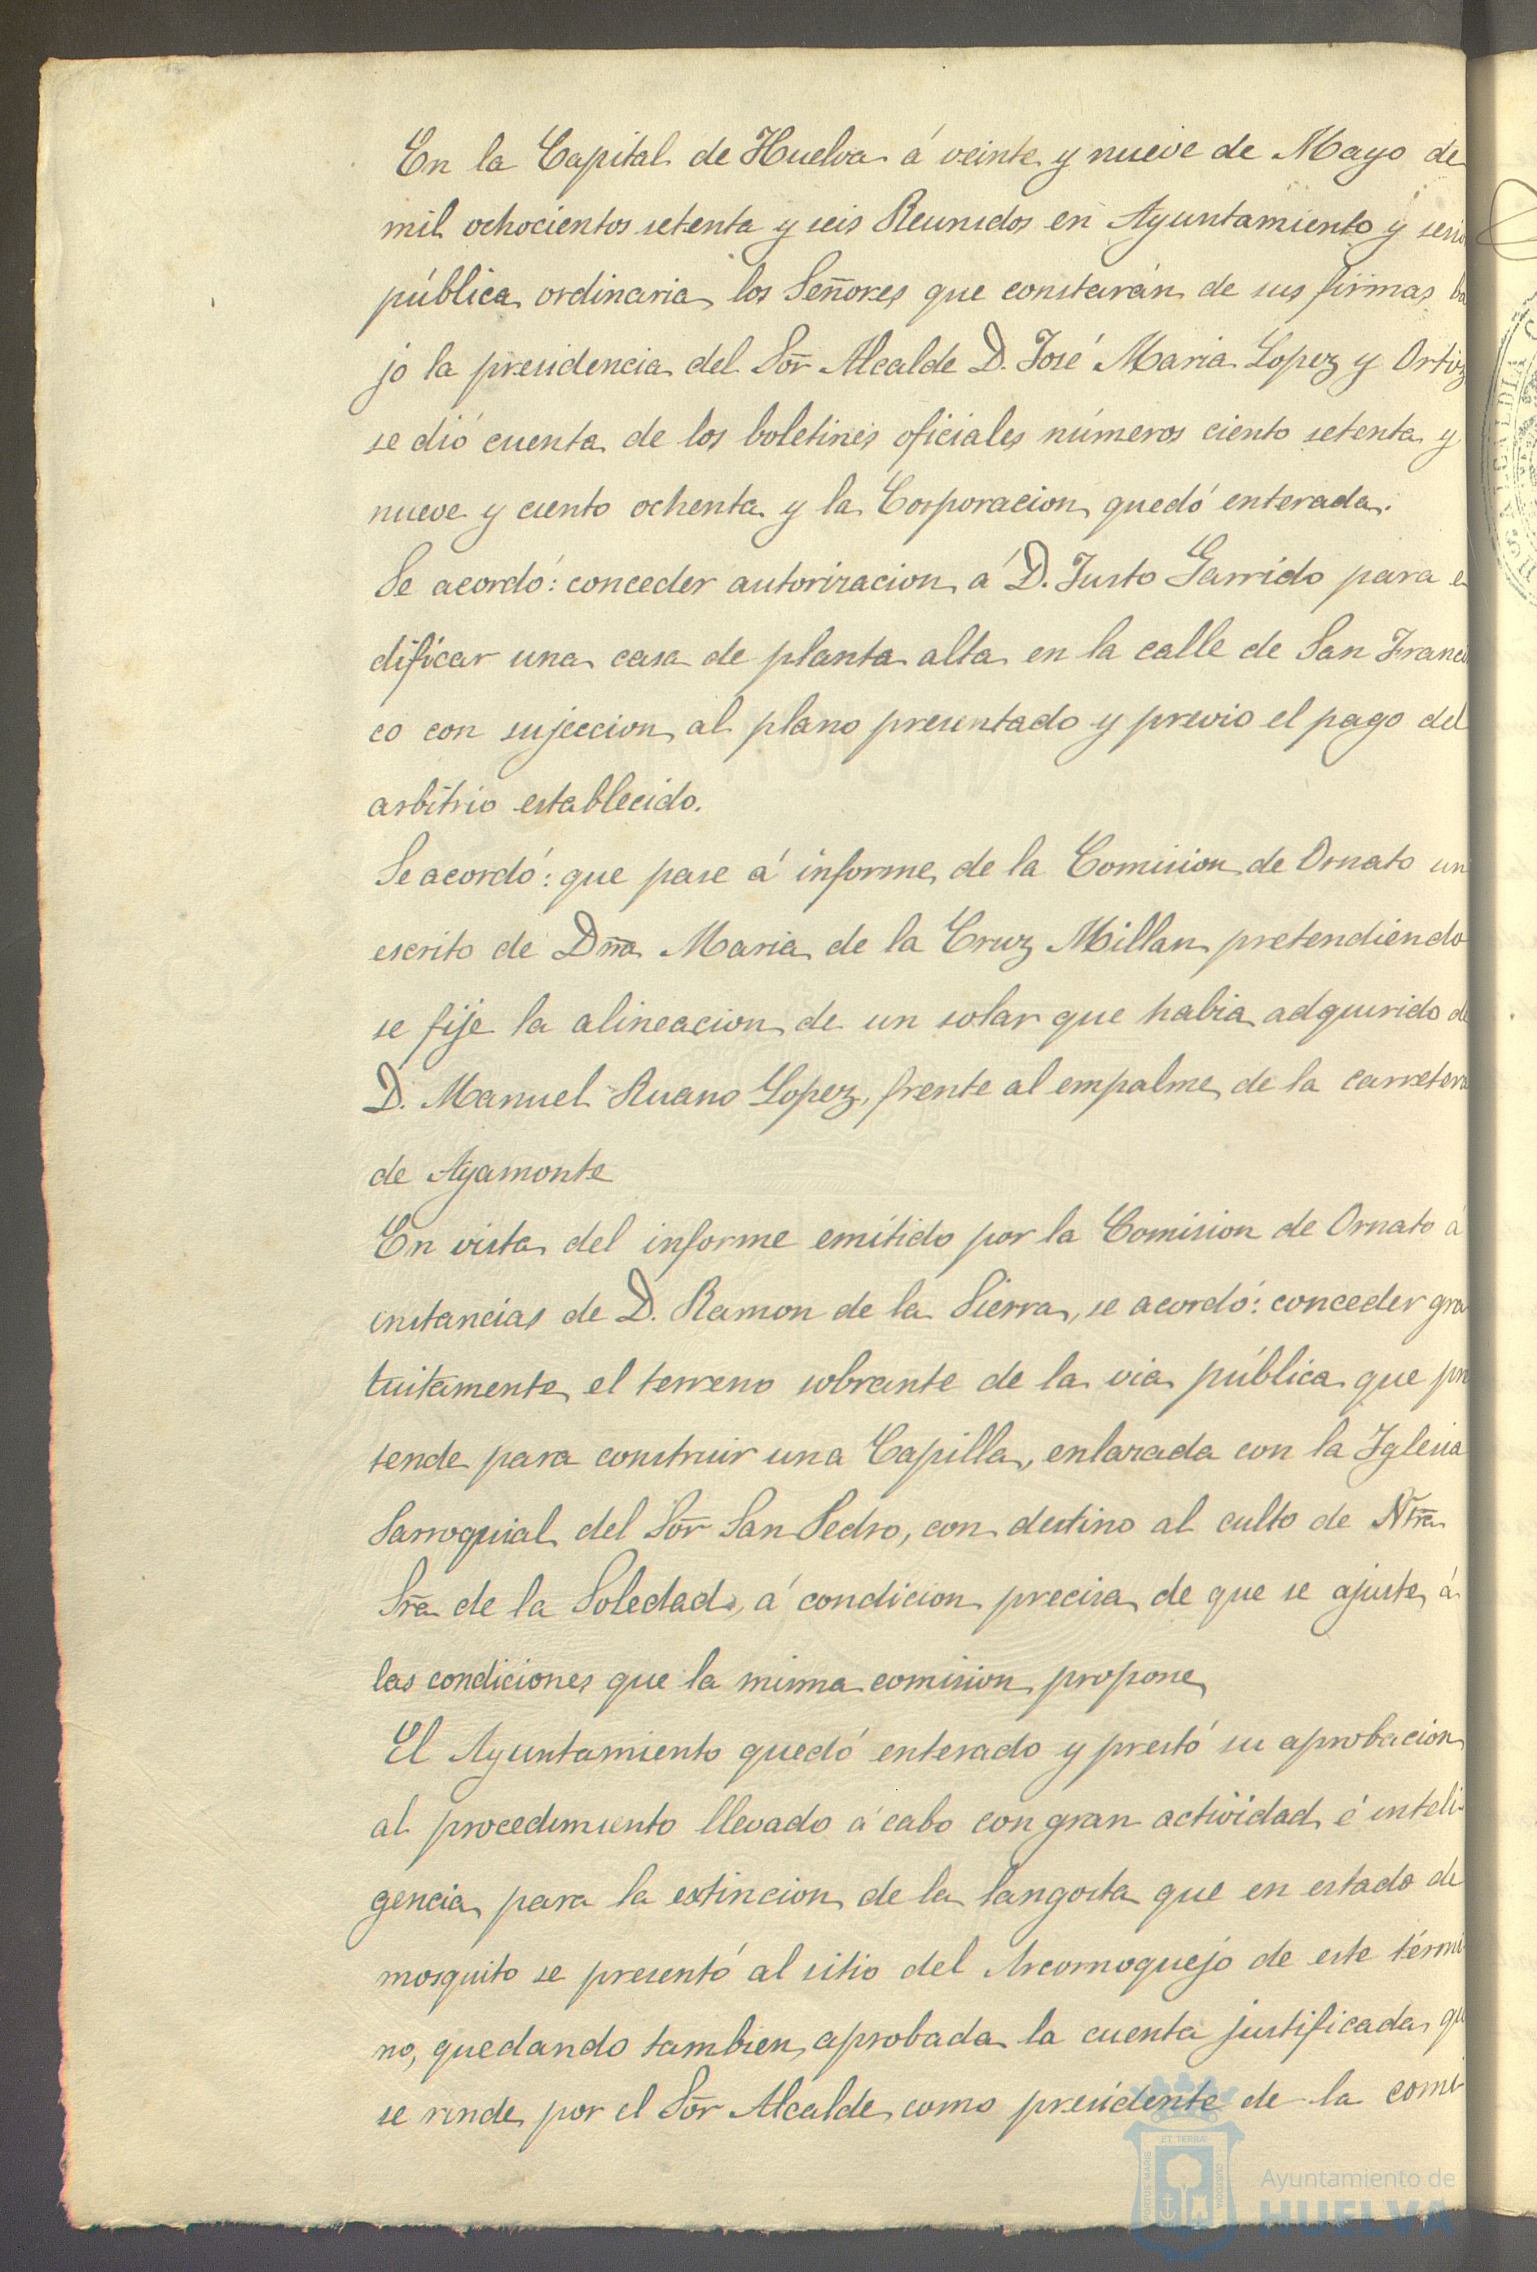 En la Capital de Huelva á veinte y nueve de Mayo de
mil ochocientos setenta y seis Reunidos en Ayuntamiento y sesio
pública ordinaria los Señores que constarán de sus firmas ba
jo la presidencia del Sor Alcalde D. José Maria Lopez y Ortiz
se dió cuenta de los boletines oficiales números ciento setenta y
nueve y ciento ochenta y la Corporacion quedó enterada.
Se acordó: conceder autorizacion á D. Justo Garrido para e
dificar una casa de planta alta en la calle de San Francis
co con sujeccion al plano presentado y previo el pago del
arbitrio establecido.
Se acordó: que pase á informe de la Comision de Ornato un
escrito de Dña Maria de la Cruz Millan pretendiendo
se fije la alineacion de un solar que habia adquirido de
D. Manuel Ruano Lopez, frente al empalme de la carretera
de Ayamonte
En vista del informe emitido por la Comision de Ornato á
instancias de D. Ramon de la Sierra, se acordó: conceder gra
tuitamente el terreno sobrante de la via pública que pre
tende para construir una Capilla, enlazada con la Iglesia
Parroquial del Sor San Pedro, con destino al culto de Ntra
Sra de la Soledad, á condicion precisa de que se ajuste á
las condiciones que la misma comision propone
El Ayuntamiento quedó enterado y prestó su aprobacion
al procedimiento llevado á cabo con gran actividad é inteli-
gencia para la extincion de la langosta que en estado de
mosquito se presentó al sitio del Arcornoquejo de este térmi-
no, quedando tambien aprobada la cuenta justificada qu
se rinde por el Sor Alcalde como presidente de la comi-
Ayuntamiento de
HUELVA
PORTUS MARIS
ET TERRAE
CUSTODIA